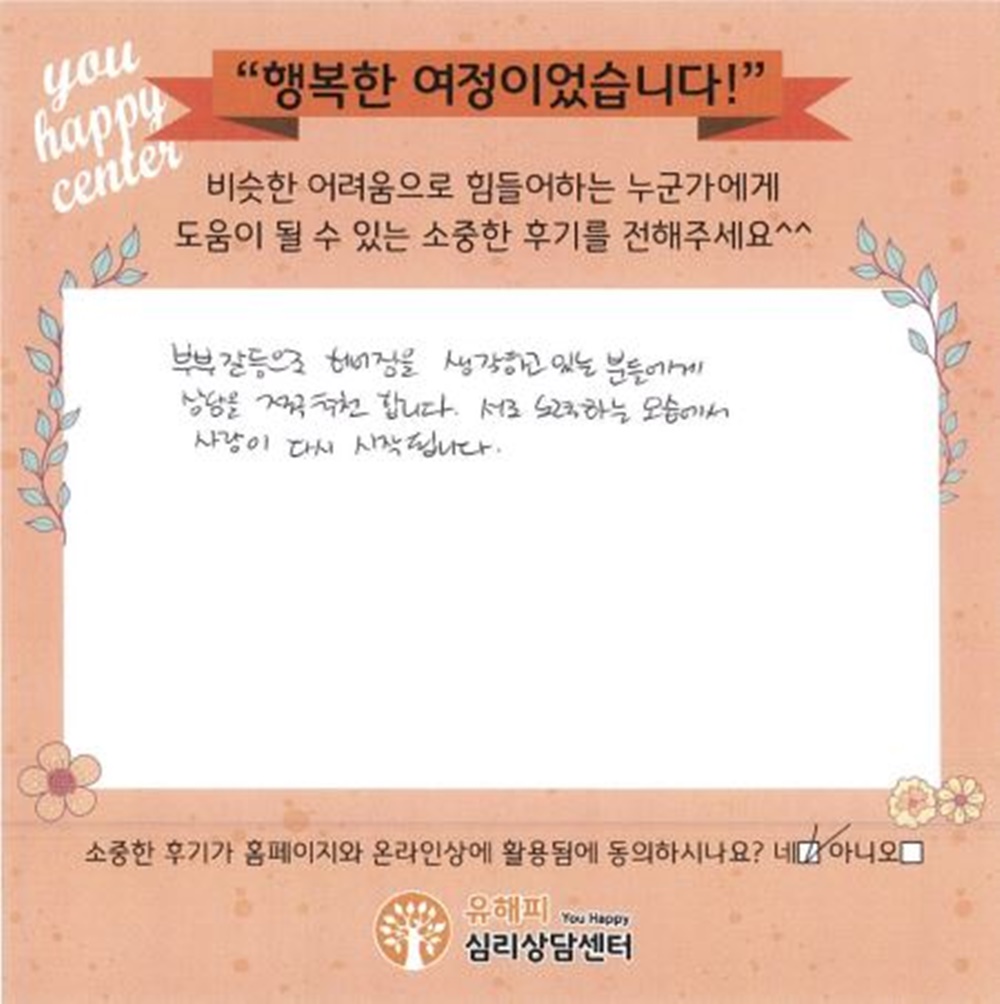 you
happy
center
“행복한 여정이었습니다!”
비슷한 어려움으로 힘들어하는 누군가에게
도움이 될 수 있는 소중한 후기를 전해주세요^^
부부갈등으로 헤어짐을 생각하고 있는 분들에게
상담을 적극 추천 합니다. 서로 노력하는 모습에서
사랑이 다시 시작됩니다.
소중한 후기가 홈페이지와 온라인상에 활용됨에 동의하시나요? 네 아니오
유해피 You Happy
심리상담센터